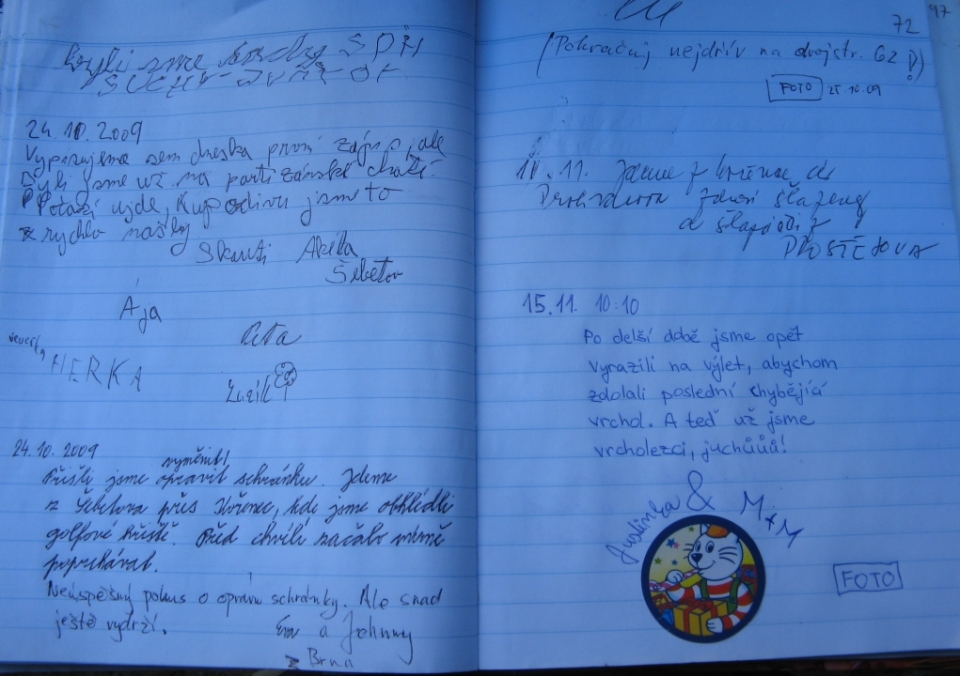 byli sme tady SDH
SUCHÝ
24.10.2009
Vypravujeme sem dneska první zájezd, ale
byli jsme už na partizánské chatě.
Počasí ujde, kupodivu jsme to
rychlo našly
Skauti Akéla
Šebetov
Ája
Céťa
veverky HERKA
24.10.2009
vyměnit!
Přišli jsme opravit schránku. Jdeme
z Šebetova přes Kořenec, kde jsme obhlédli
golfové hřiště. Před chvílí začalo mírně
poprchávat.
Neúspěšný pokus o opravu schránky. Ale snad
ještě vydrží.
Eva a Johnny
z Brna
72
97
(Pokračuj nejdřív na dvojstr. 62!)
FOTO 25.10.09
11. Jdeme z Kořence do
PROSTĚJOVA
15.11. 10:10
Po delší době jsme opět
vyrazili na výlet, abychom
zdolali poslední chybějící
vrchol. A teď už jsme
vrcholezci, juchůůů!
Justinka & M+M
FOTO